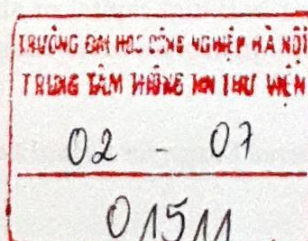 TRƯỜNG ĐẠI HỌC CÔNG NGHIỆP HÀ NỘI
TRUNG TÂM THÔNG TIN THƯ VIỆN
02 - 07
01511